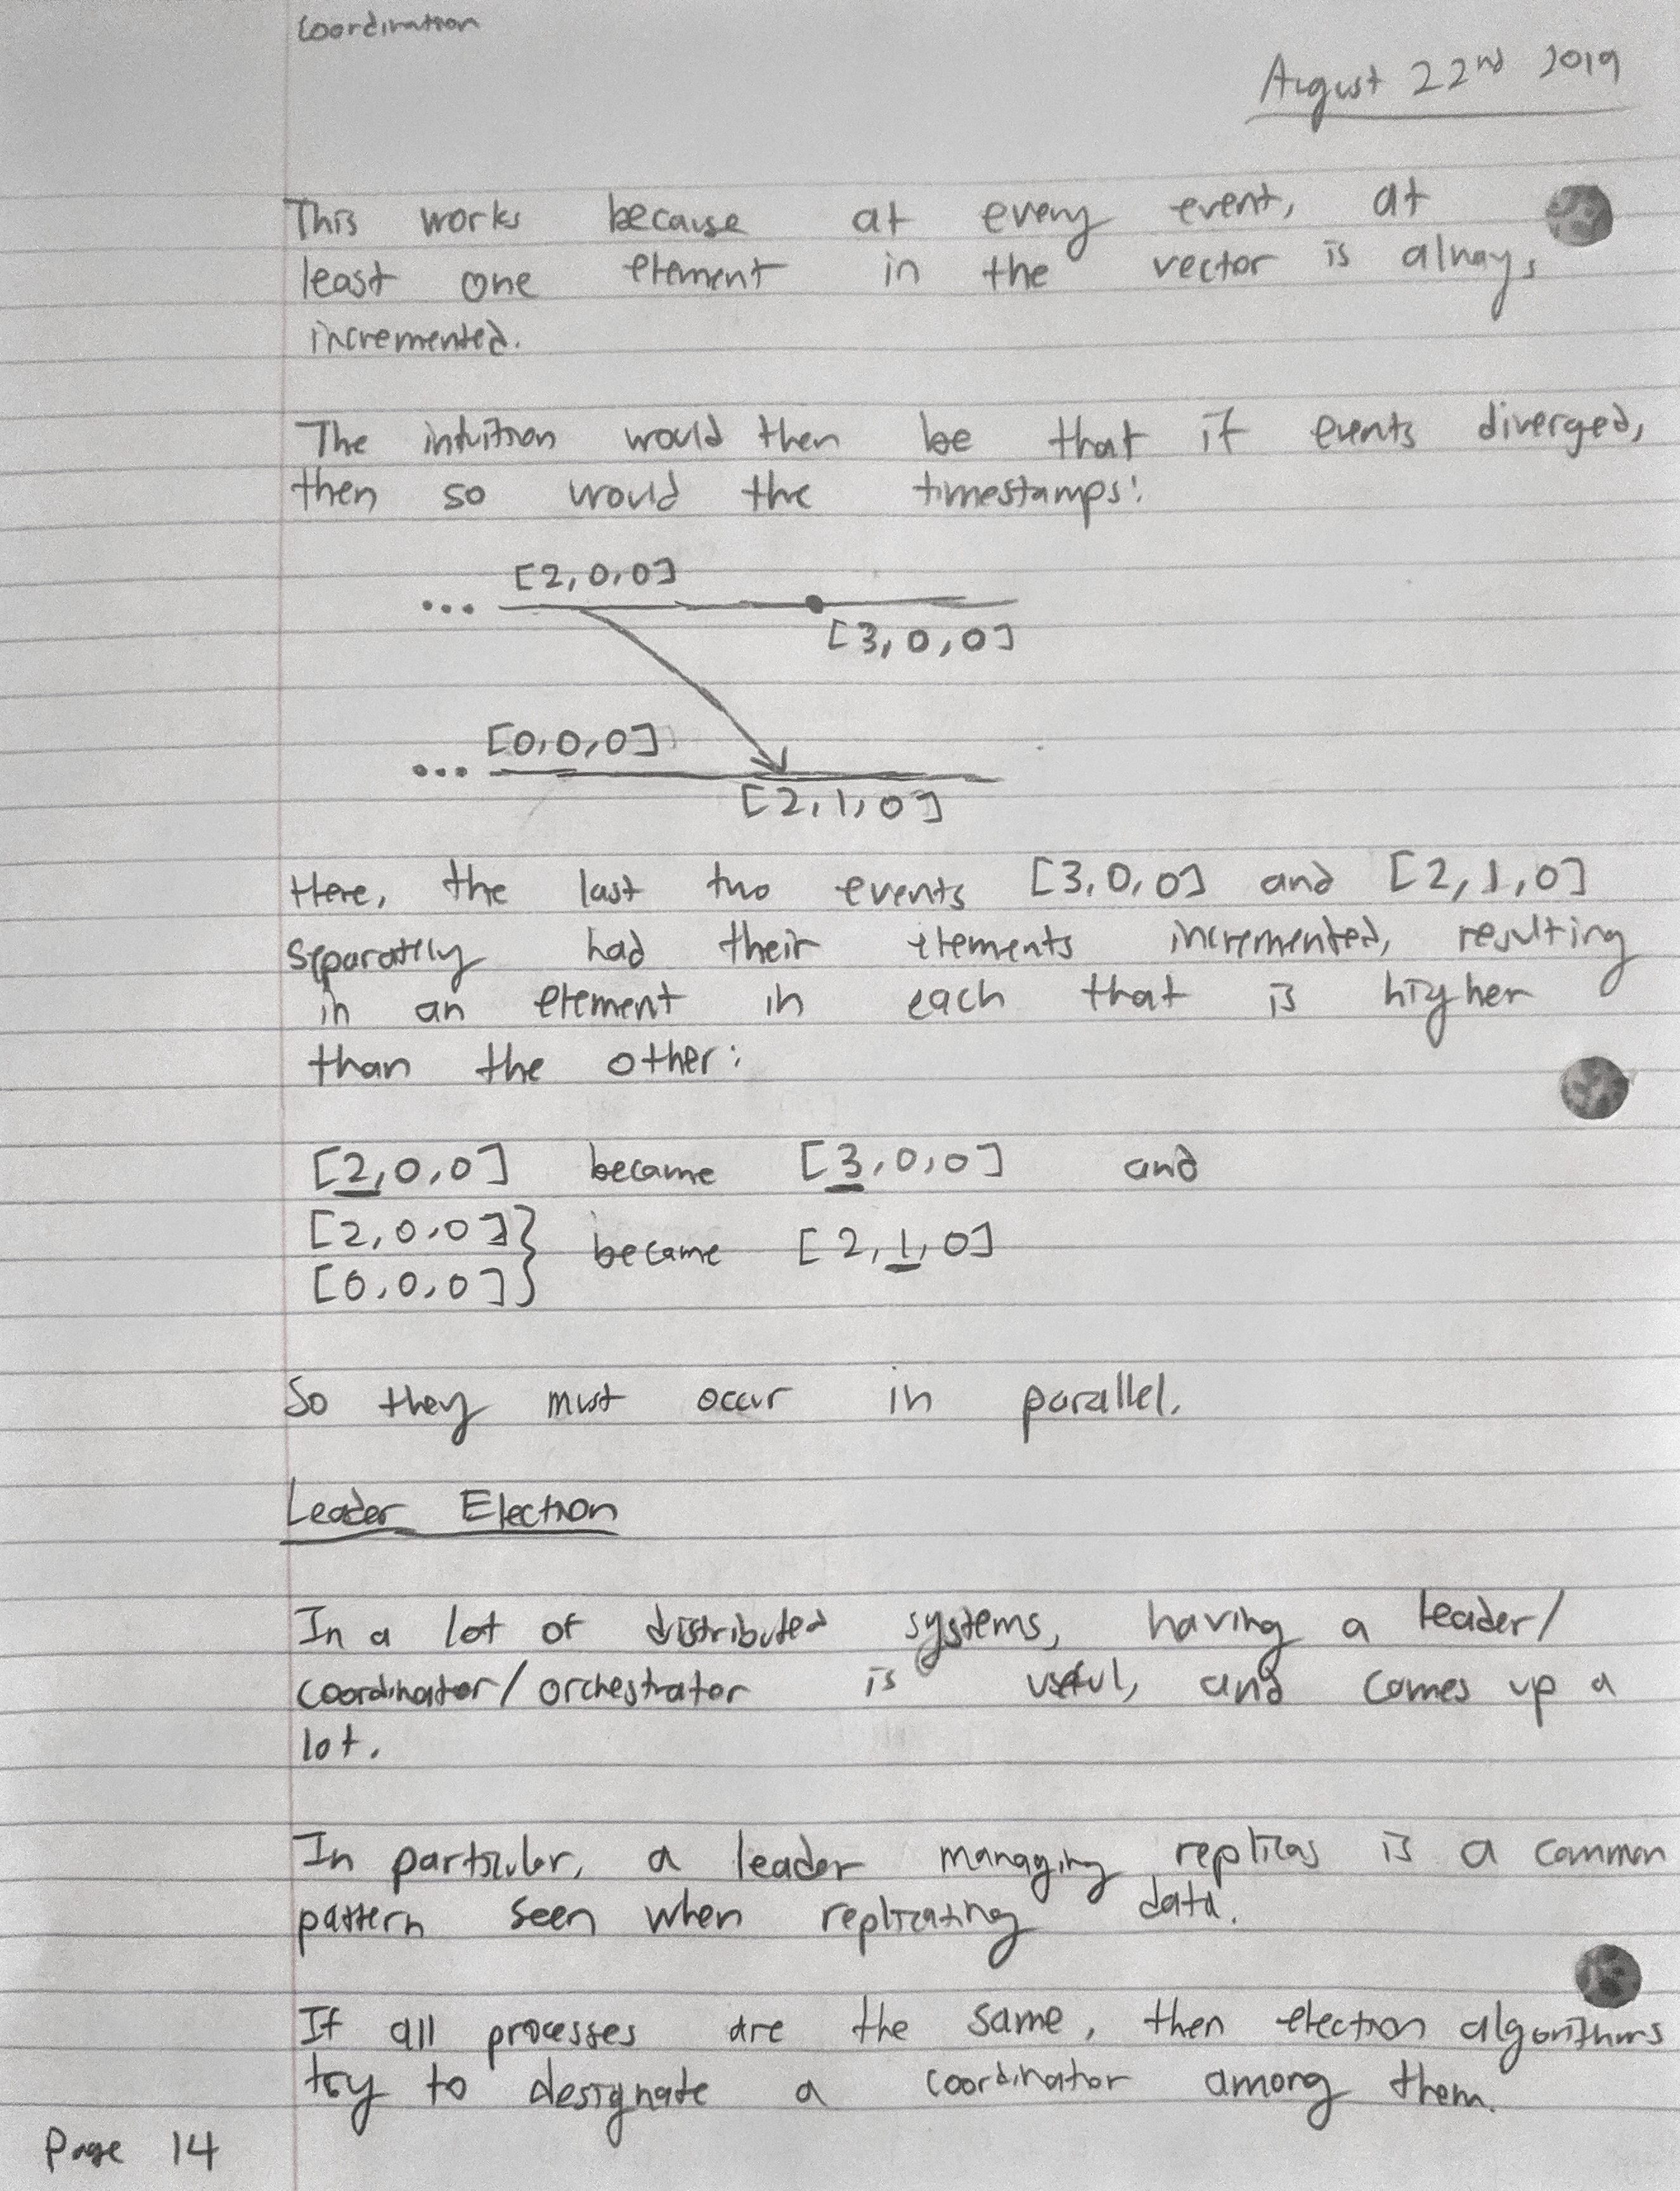 Coordination
August 22nd 2019
This works because at every event, at
least one element in the vector is always
incremented.
The intuition would then be that if events diverged,
then so would the timestamps:
[2,0,0]
...
[3,0,0]
[0,0,0]
...
[2,1,0]
Here, the last two events [3,0,0] and [2,1,0]
separately had their elements incremented, resulting
in an element in each that is higher
than the other:
[2,0,0] became [3,0,0] and
[2,0,0]} became [2,1,0]
[0,0,0]}
So they must occur in parallel.
Leader Election
In a lot of distributed systems, having a leader/
coordinator/orchestrator is useful, and comes up a
lot.
In particular, a leader managing replicas is a common
pattern seen when replicating data.
If all processes are the same, then election algorithms
try to designate a coordinator among them.
Page 14